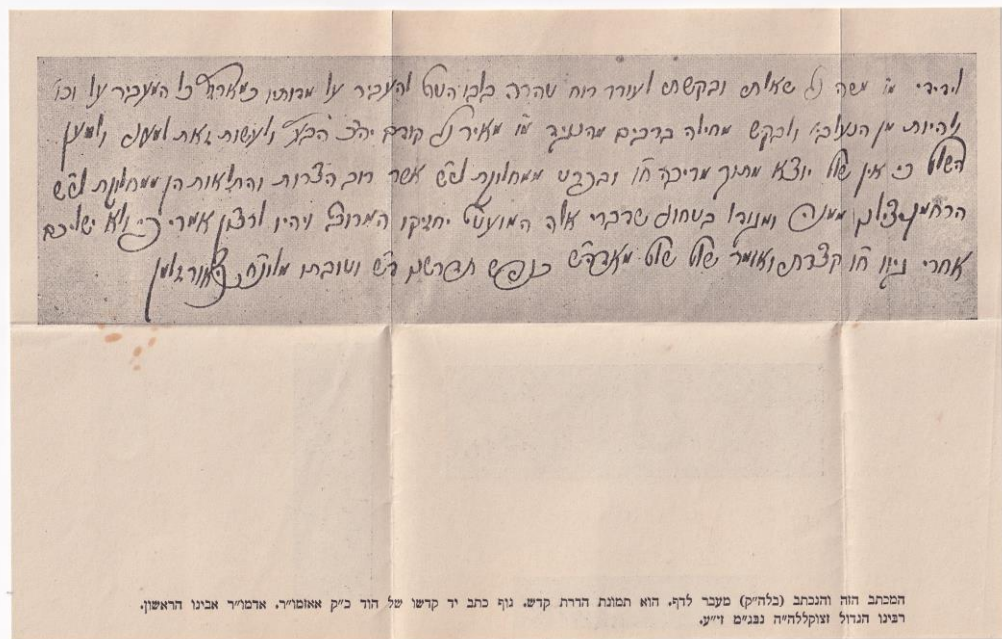 ידידי מו' משה נ"י שאלתי ובקשתי לעורר רוח טהרה בלבו הטוב להעביר על מדותיו כמארז"ל כל המעביר על וכו'
ולהיות מן הנעלבי' ולבקש מחילה ברבים מהנגיד מו' מאיר נ"י קודם ולעשות זאת למענו ולמען
השלום כי אין שלום יוצא מתוך מריבה ח"ו ובפרט ממחלוקת אשר רוב הצרות והתלאות הן ממחלוקת
הרחמן יצילנו ממנו ומנוי בטחוני שדברי אלה המועטים יחזיקו המרובה ויהיו לרצון אמרי כי לא ישליכם
אחרי גיוו ח"ו שלום שלום כנפש
המכתב הזה והנכתב (בלה"ק) מעבר לדף. הוא תמונת הדרת קדש. גוף כתב יד קדשו של הוד כ"ק אאזמו"ר. אדמו"ר אבינו הראשון.
רבינו הגדול זצוקללה"ה נבג"מ זי"ע.